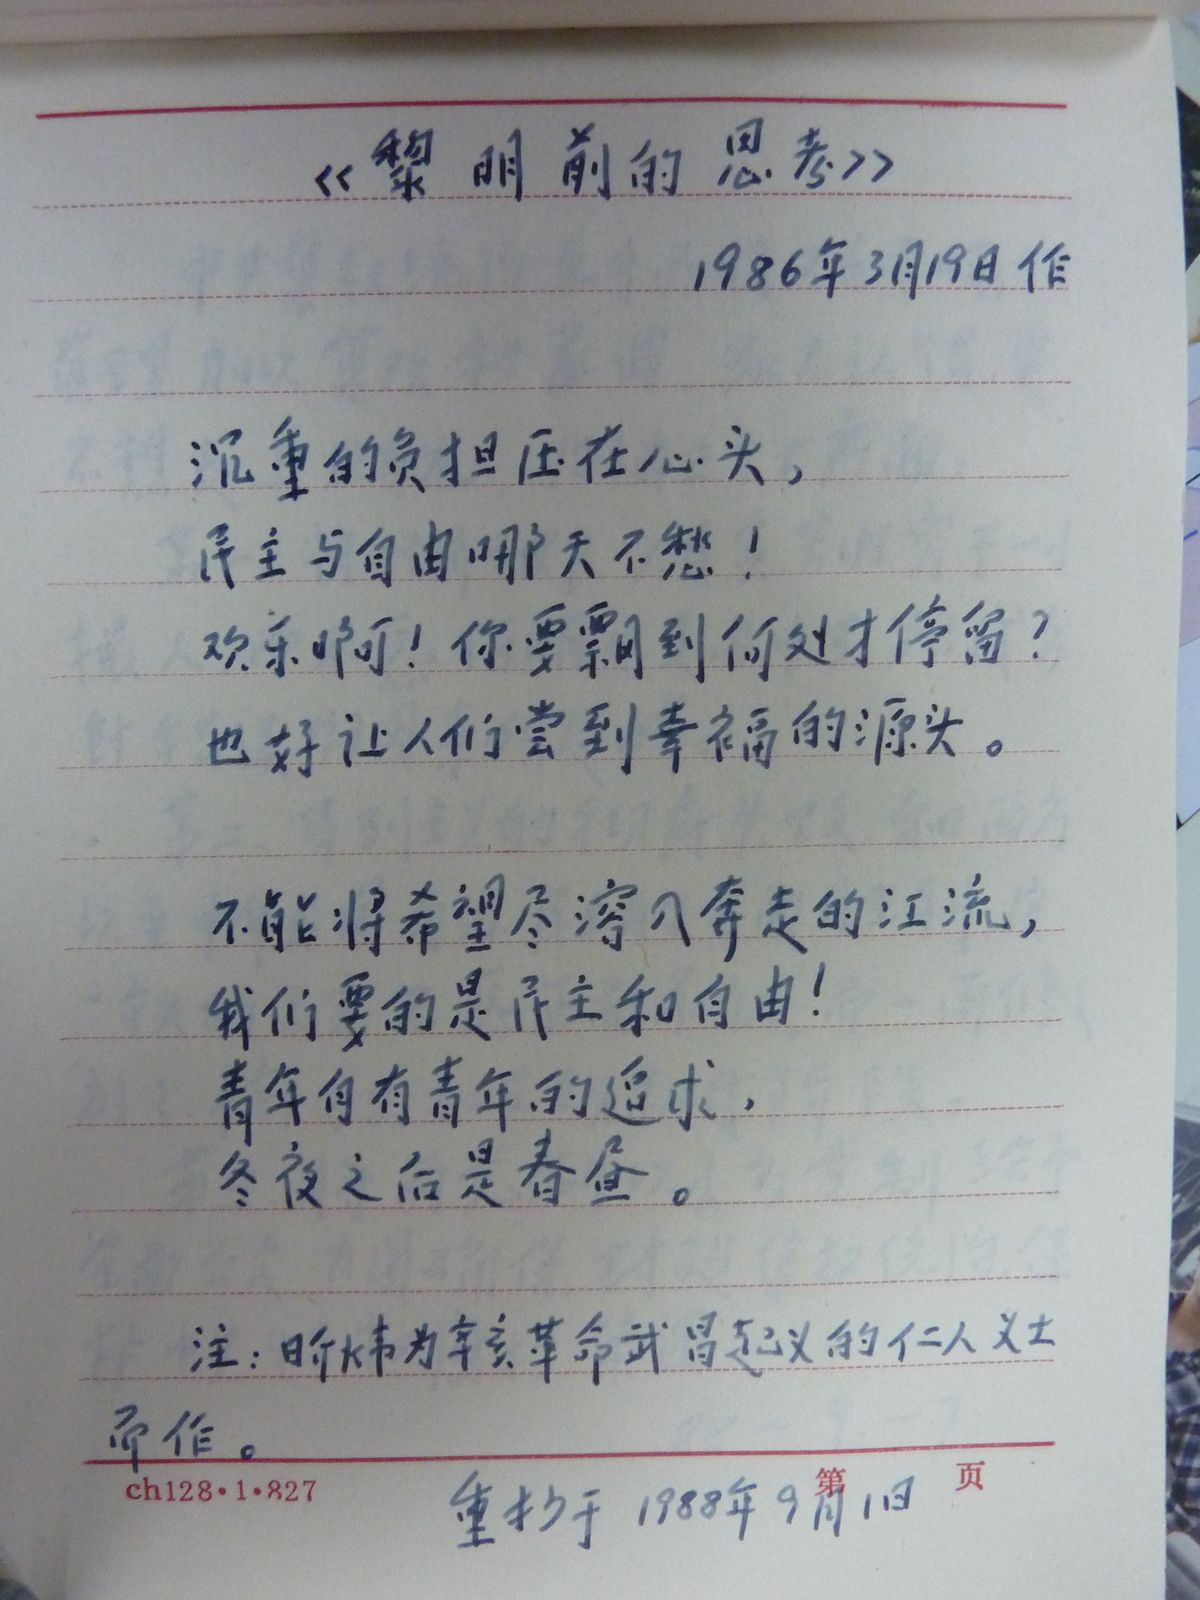 《黎明前的思考》
1986年3月19日作
沉重的负担压在心头，
民主与自由哪天不愁！
欢乐啊！你要飘到何处才停留？
也好让人们尝到幸福的源头。
不能将希望尽溶入奔走的江流，
我们要的是民主和自由！
青年自有青年的追求，
冬夜之后是春昼。
注：昕炜为辛亥革命武昌起义的仁人义士
而作。
ch128·1·827 第 页
重抄于 1988年9月1日